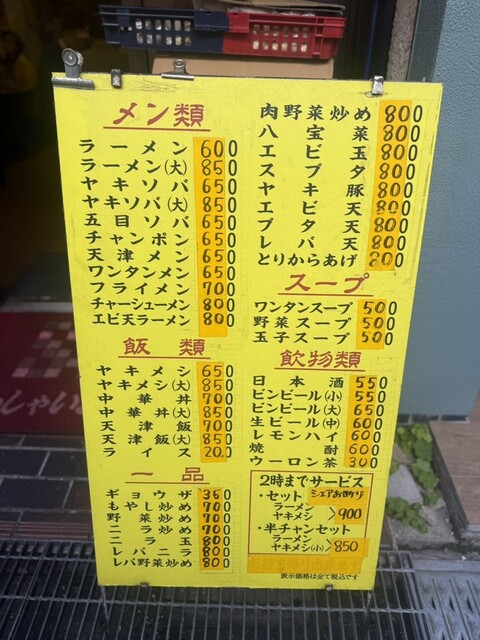 メン類
ラーメン 600
ラーメン(大) 850
ヤキソバ 650
ヤキソバ(大) 850
五目ソバ 650
チャンポン 650
天津メン 650
ワンタンメン 650
フライメン 700
チャーシューメン 800
エビ天ラーメン 800
飯類
ヤキメシ 650
ヤキメシ(大) 850
中華丼 700
中華丼(大) 850
天津飯 700
天津飯(大) 850
ライス 200
一品
ギョウザ 350
もやし炒め 700
野菜炒め 700
ニラ炒め 700
ニラ玉 800
レバニラ 800
レバ野菜炒め 800
肉野菜炒め 800
八宝菜 800
エビ玉 800
スブタ 800
ヤキ豚 800
エビ天 800
ブタ天 800
レバ天 800
とりからあげ 800
スープ
ワンタンスープ 500
野菜スープ 500
玉子スープ 500
飲物類
日本酒 550
ビンビール(小) 550
ビンビール(大) 650
生ビール(中) 600
レモンハイ 600
焼酎 600
ウーロン茶 300
2時までサービス
・セット シェアお断り
ラーメン
ヤキメシ 900
・半チャンセット
ラーメン
ヤキメシ(小) 850
表示価格は全て税込です